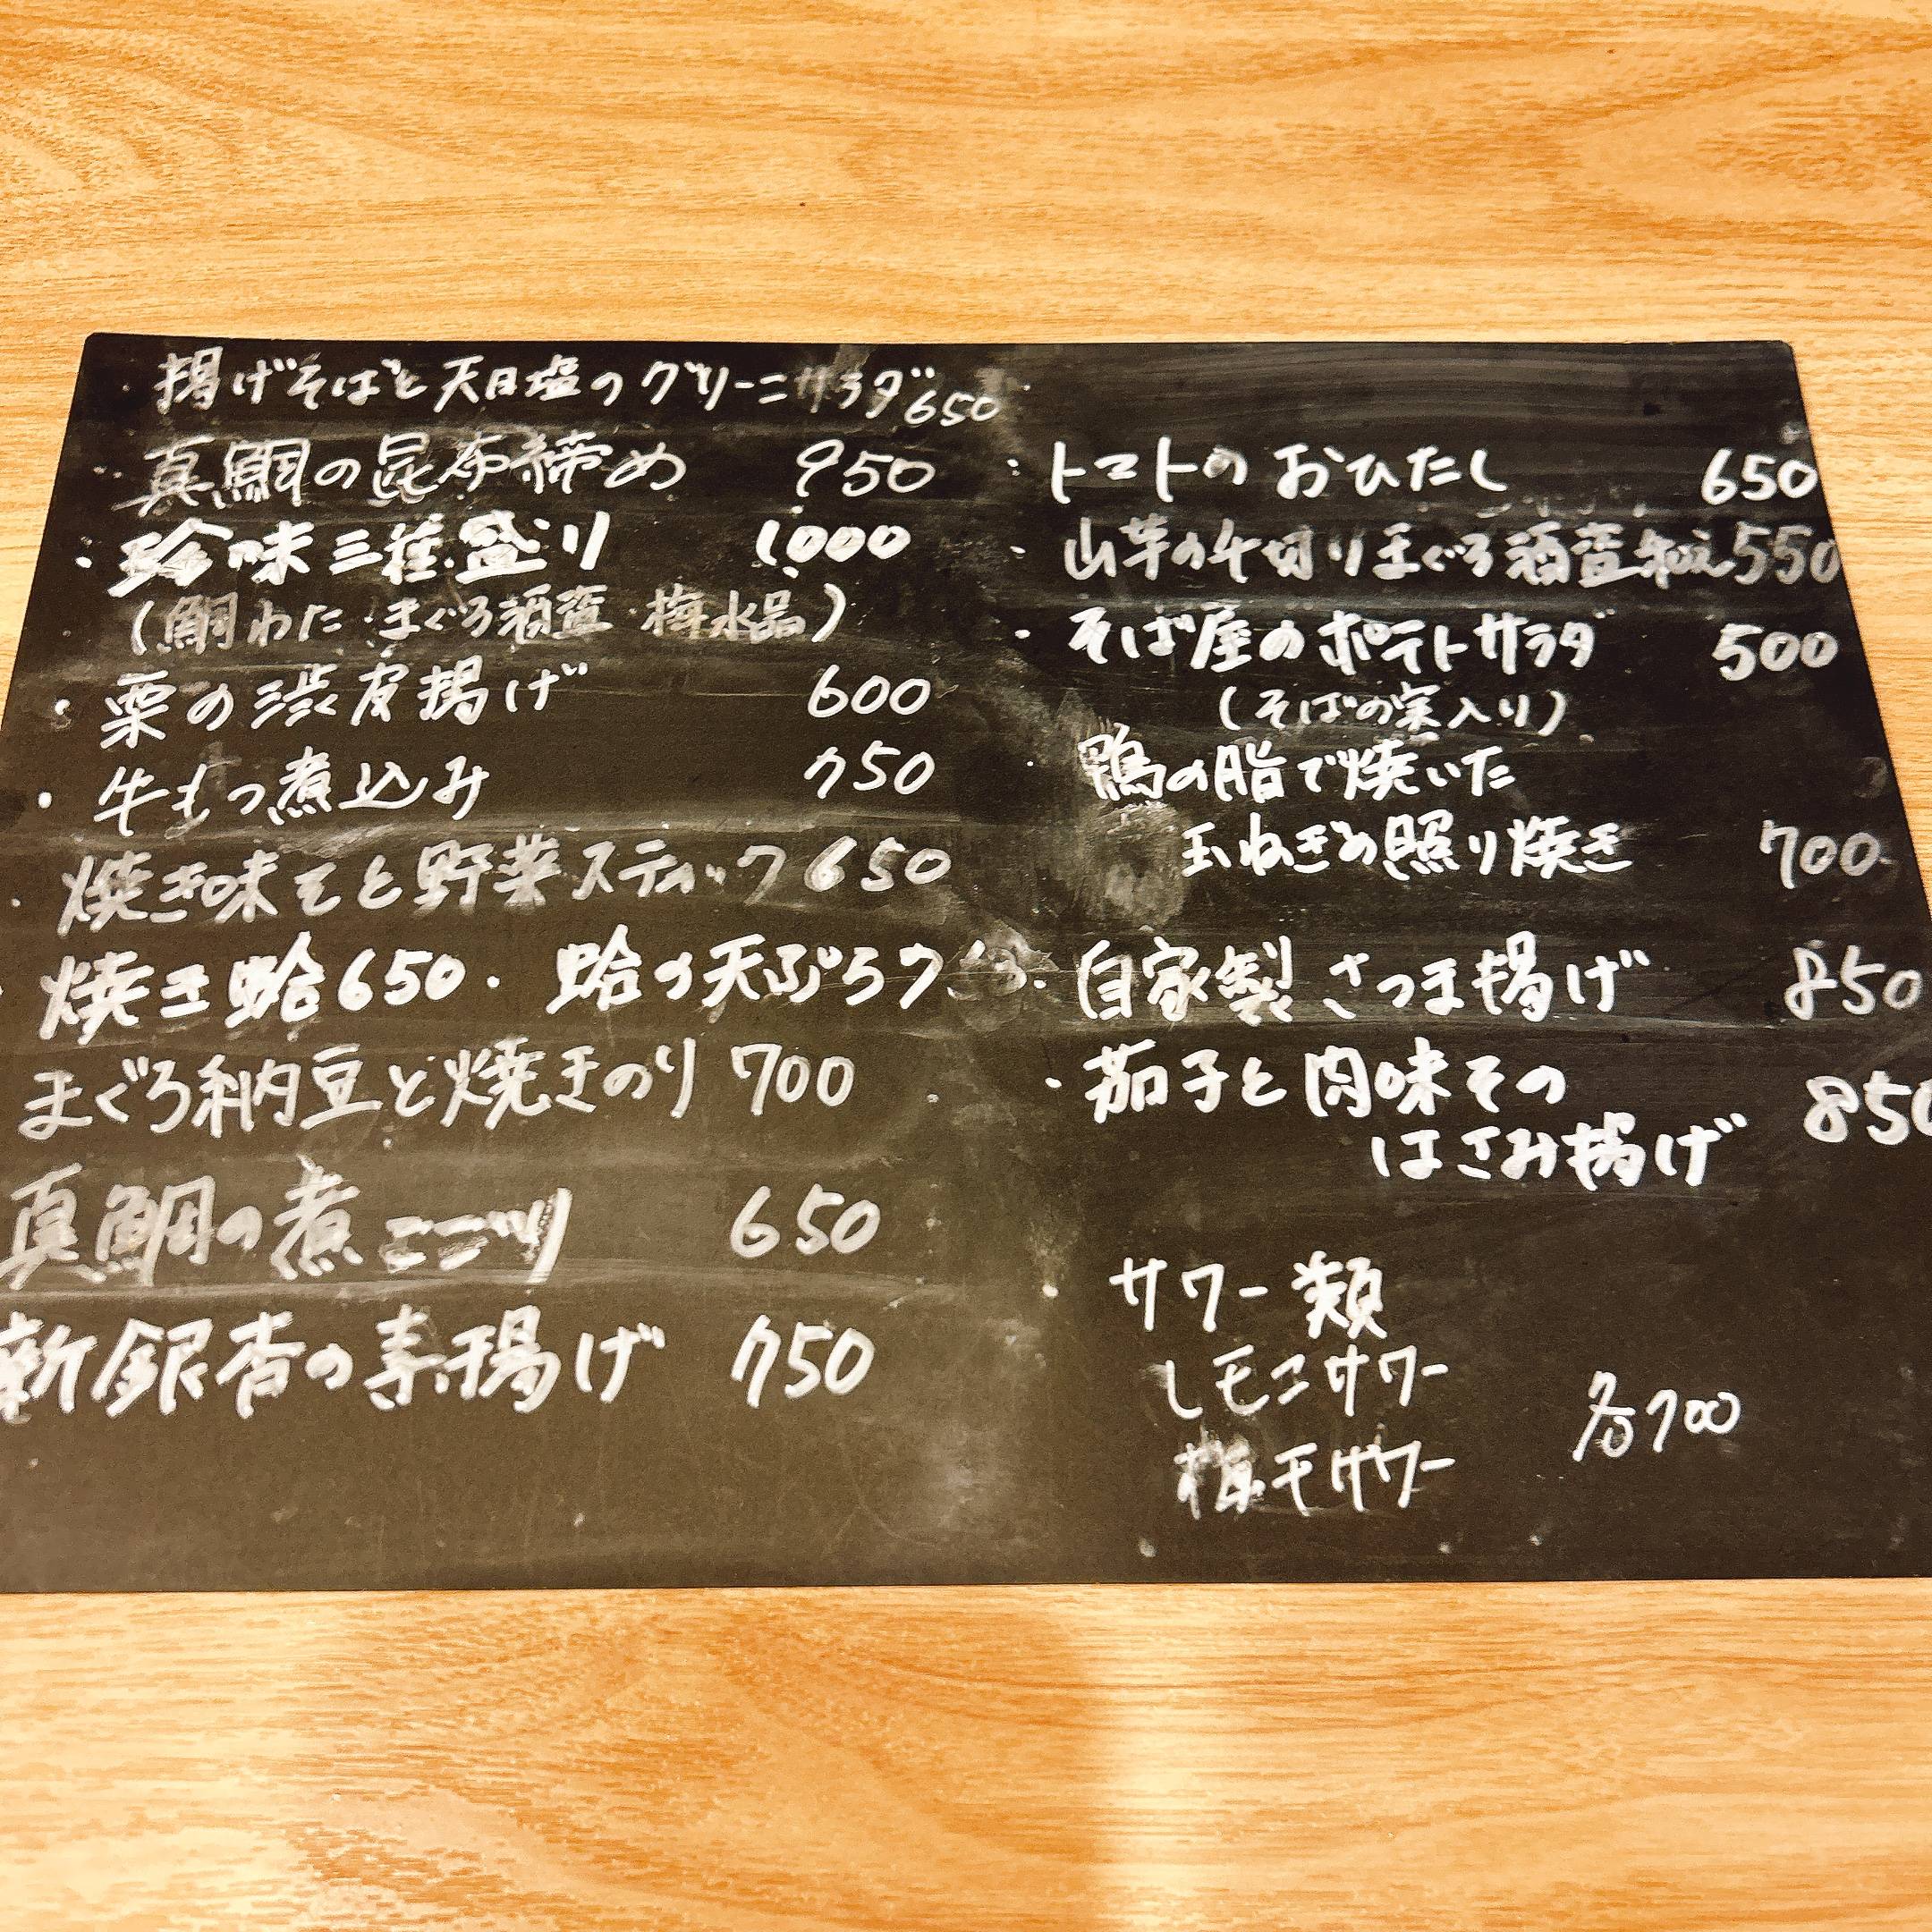 ・揚げそばと天日塩のグリーンサラダ 650
真鯛の昆布締め 950
・珍味三種盛り 1000
(鯛わた・まぐろ酒盗・梅水晶)
・栗の渋皮揚げ 600
・牛もつ煮込み 750
・焼き味そと野菜スティック 650
・焼き蛤650・蛤の天ぷら
まぐろ納豆と焼きのり 700
真鯛の煮こごり 650
新銀杏の素揚げ 750
・トマトのおひたし 650
・山芋の千切りまぐろ酒盗和え 550
・そば屋のポテトサラダ 500
(そばの実入り)
・鴨の脂で焼いた
玉ねぎの照り焼き 700
・自家製さつま揚げ 850
・茄子と肉味その
はさみ揚げ 850
サワー類
レモンサワー
各700
梅干サワー